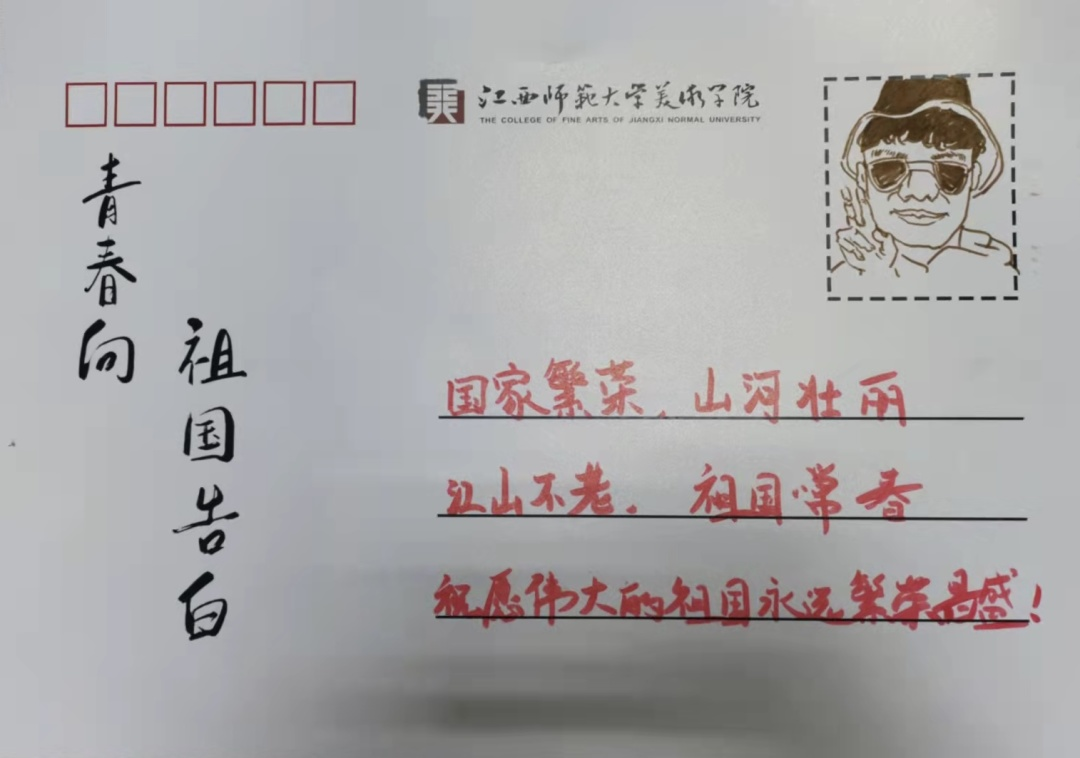 江西师范大学美术学院
THE COLLEGE OF FINE ARTS OF JIANGXI NORMAL UNIVERSITY
青春向
祖国告白
国家繁荣，山河壮丽
江山不老，祖国常春
祝愿伟大的祖国永远繁荣昌盛！